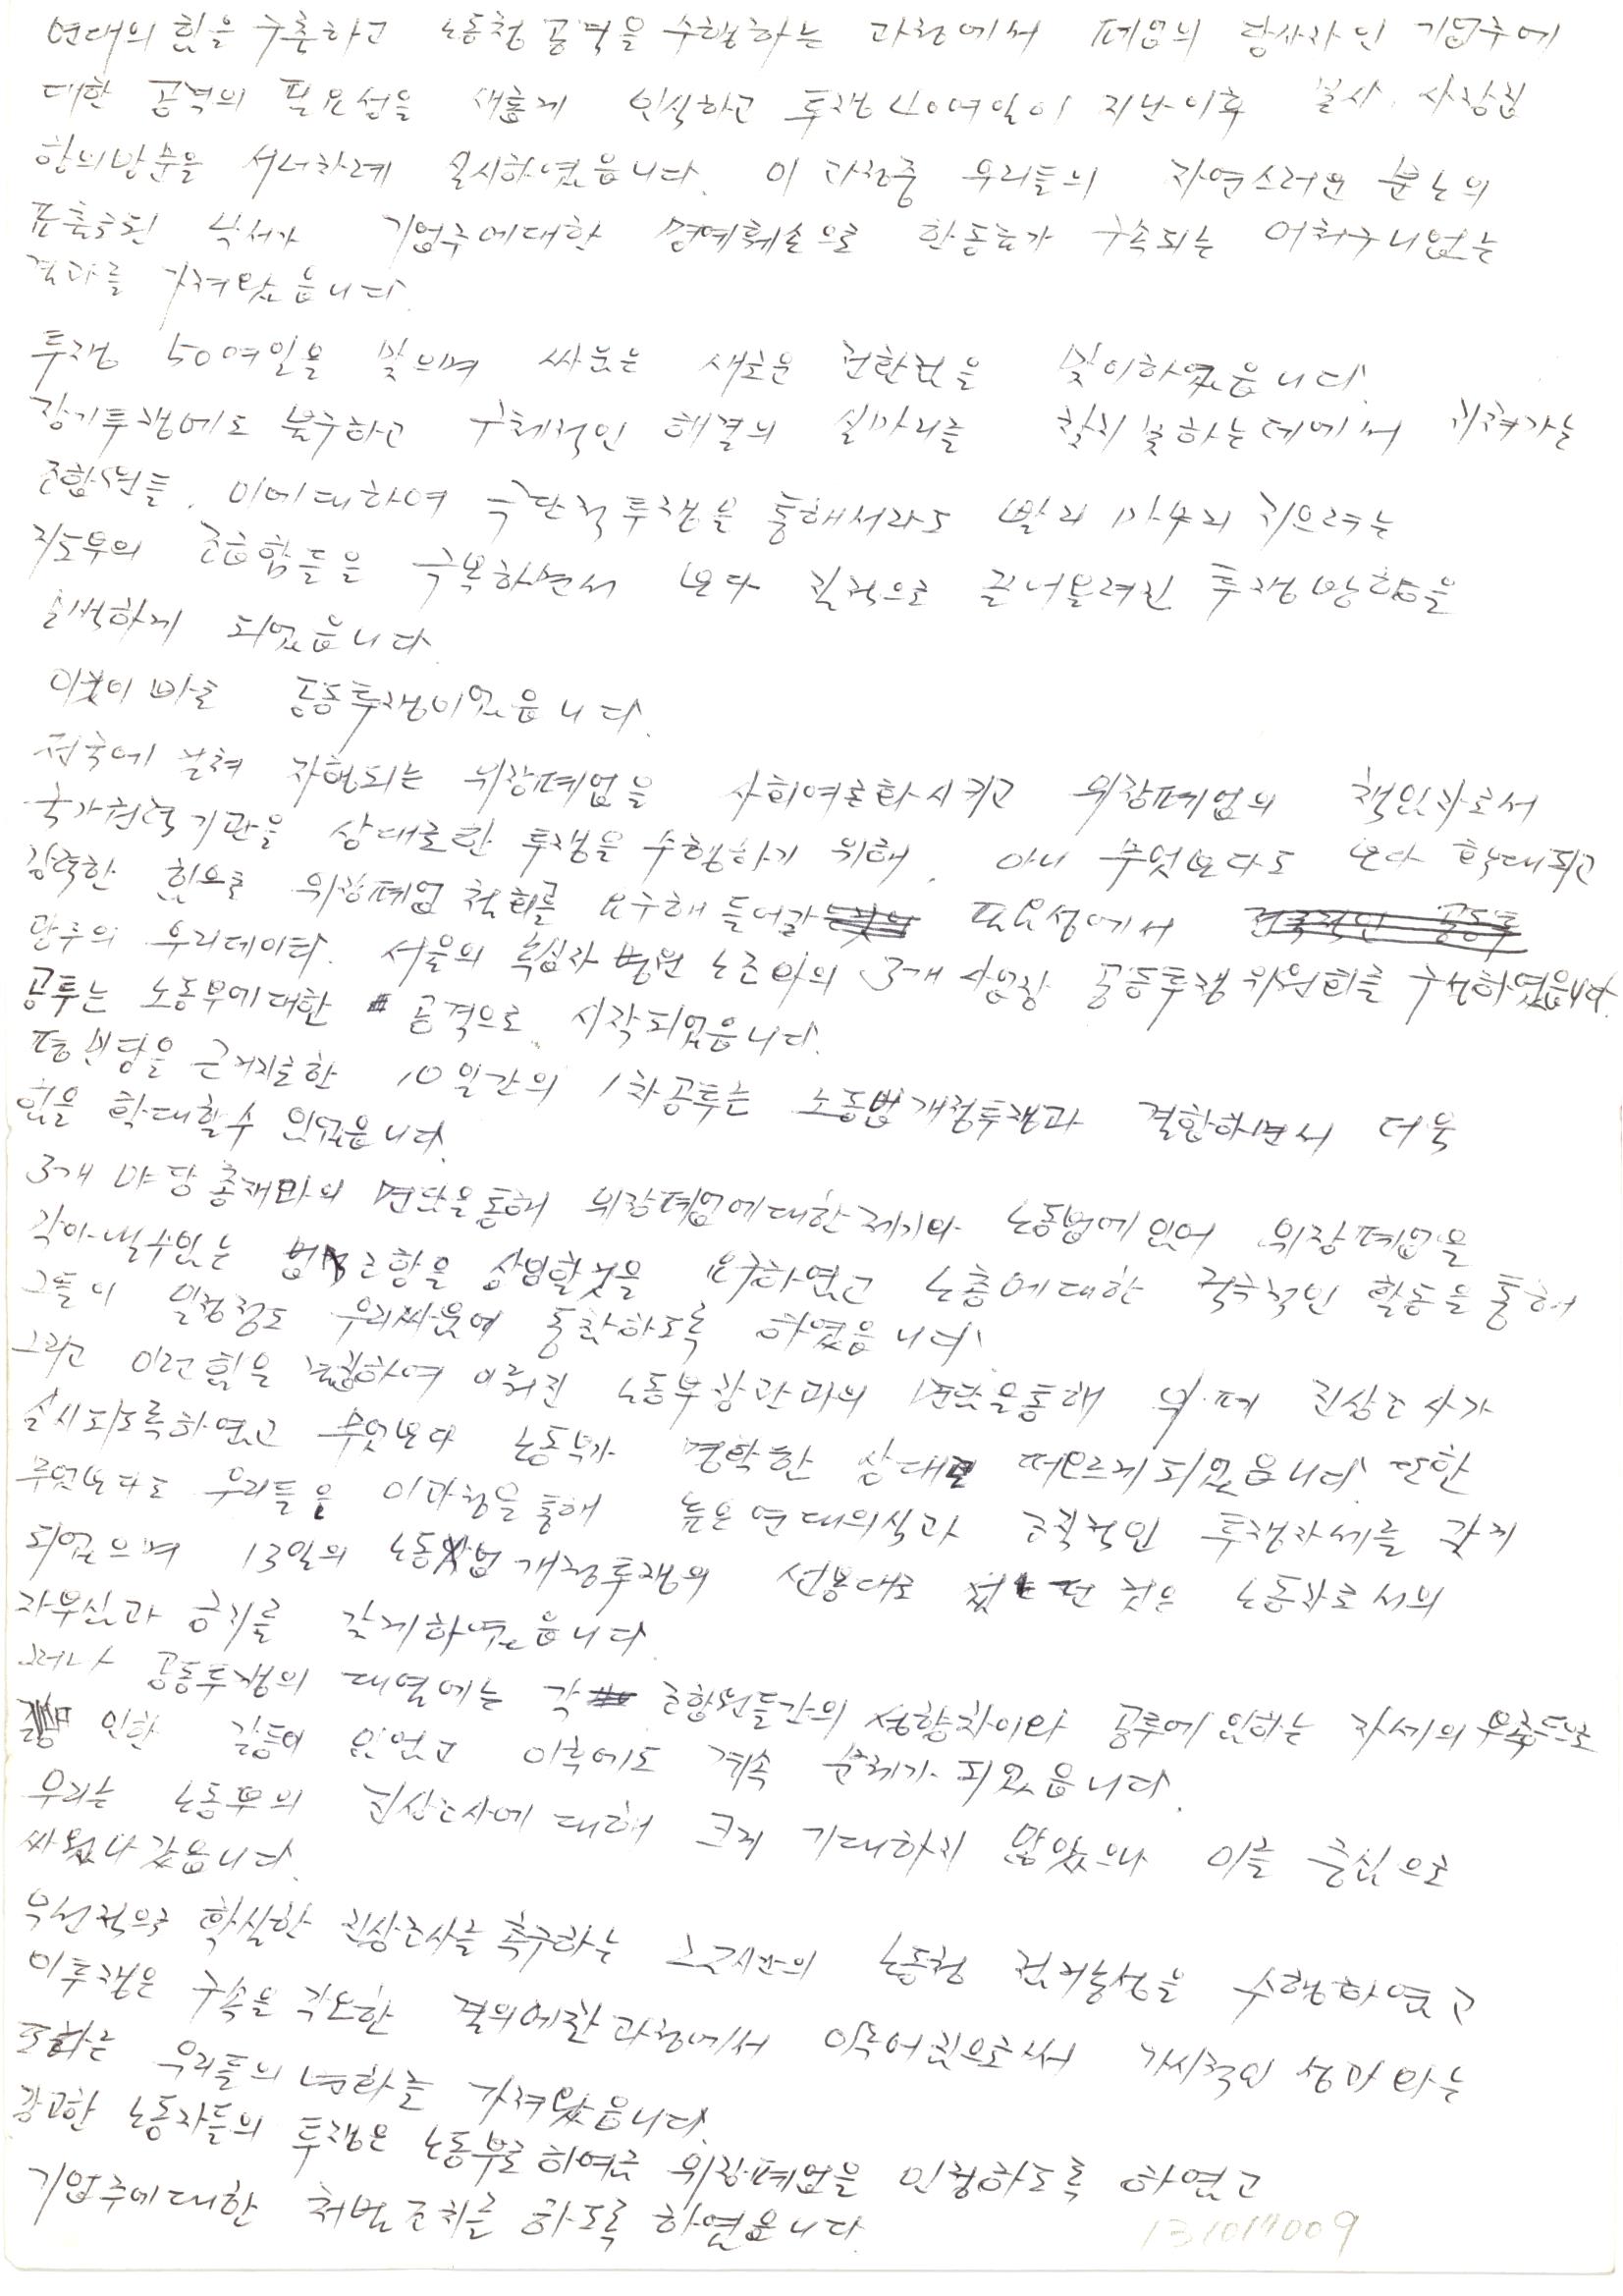 연대의 힘을 구축하고 노동청 공격을 수행하는 과정에서 폐업의 당사자인 기업주에
대한 공격의 필요성을 새롭게 인식하고 투쟁 40여일이 지난이후 본사, 사장집
항의방문을 서너차례 실시하였읍니다. 이 과정중 우리들의 자연스러운 분노의
표출로된 낙서가 기업주에대한 명예훼손으로 한동료가 구속되는 어처구니없는
결과를 가져왔읍니다.
투쟁 50여일을 맞으며 싸움은 새로운 전환점을 맞이하였읍니다.
장기투쟁에도 불구하고 구체적인 해결의 실마리를 찾지못하는데에서 지쳐가는
조합원들, 이에대하여 극단적투쟁을 통해서라도 빨리 마무리 지으려는
지도부의 조급함들을 극복하면서 보다 질적으로 끌어올려진 투쟁방향을
모색하게 되었읍니다.
이것이 바로 공동투쟁이었읍니다.
전국에 걸쳐 자행되는 위장폐업을 사회여론화시키고 위장폐업의 책임자로서
국가권력기관을 상대로한 투쟁을 수행하기 위해, 아니 무엇보다도 보다 확대되고
강력한 힘으로 위장폐업 철회를 요구해 들어갈 필요성에서 전국적인 공동투
광주의 우리데이타, 서울의 녹십자 병원 노조와의 3개 사업장 공동투쟁위원회를 구성하였읍니다.
공투는 노동부에대한 공격으로 시작되었읍니다.
평민당을 근거지로한 10일간의 1차공투는 노동법개정투쟁과 결합하면서 더욱
힘을 확대할수 있었읍니다.
3개 야당총재와의 면담을통해 위장폐업에대한제기와 노동법에있어 위장폐업을
막아낼수있는 법조항을 삽입할것을 요구하였고 노총에대한 적극적인 활동을통해
그들이 일정정도 우리싸움에 동참하도록 하였읍니다.
그리고 이런힘을 결집하여 이뤄진 노동부장관과의 면담을통해 위·폐 진상조사가
실시되도록하였고 무엇보다 노동부가 명확한 상대로 떠오르게되었읍니다. 또한
무엇보다도 우리들은 이과정을통해 높은연대의식과 조직적인 투쟁자세를 갖게
되었으며 13일의 노동법개정투쟁의 선봉대로 섰던 것은 노동자로서의
자부심과 긍지를 갖게하였읍니다.
그러나 공동투쟁의 대열에는 각 조합원들간의 성향차이와 공투에임하는 자세의 부족등으로
인한 갈등이 있었고 이후에도 계속 문제가 되었읍니다.
우리는 노동부의 진상조사에대해 크게 기대하지 않았으나 이를 중심으로
싸워나갔읍니다.
우선적으로 확실한 진상조사를 촉구하는 노동청 점거농성을 수행하였고
이투쟁은 구속을 각오한 결의에찬과정에서 이루어짐으로써 가시적인 성과와는
우리들의 변화를 가져왔읍니다.
강고한 노동자들의 투쟁은 노동부로하여금 위장폐업을 인정하도록 하였고
기업주에대한 처벌조치를 하도록 하였읍니다.
131017009